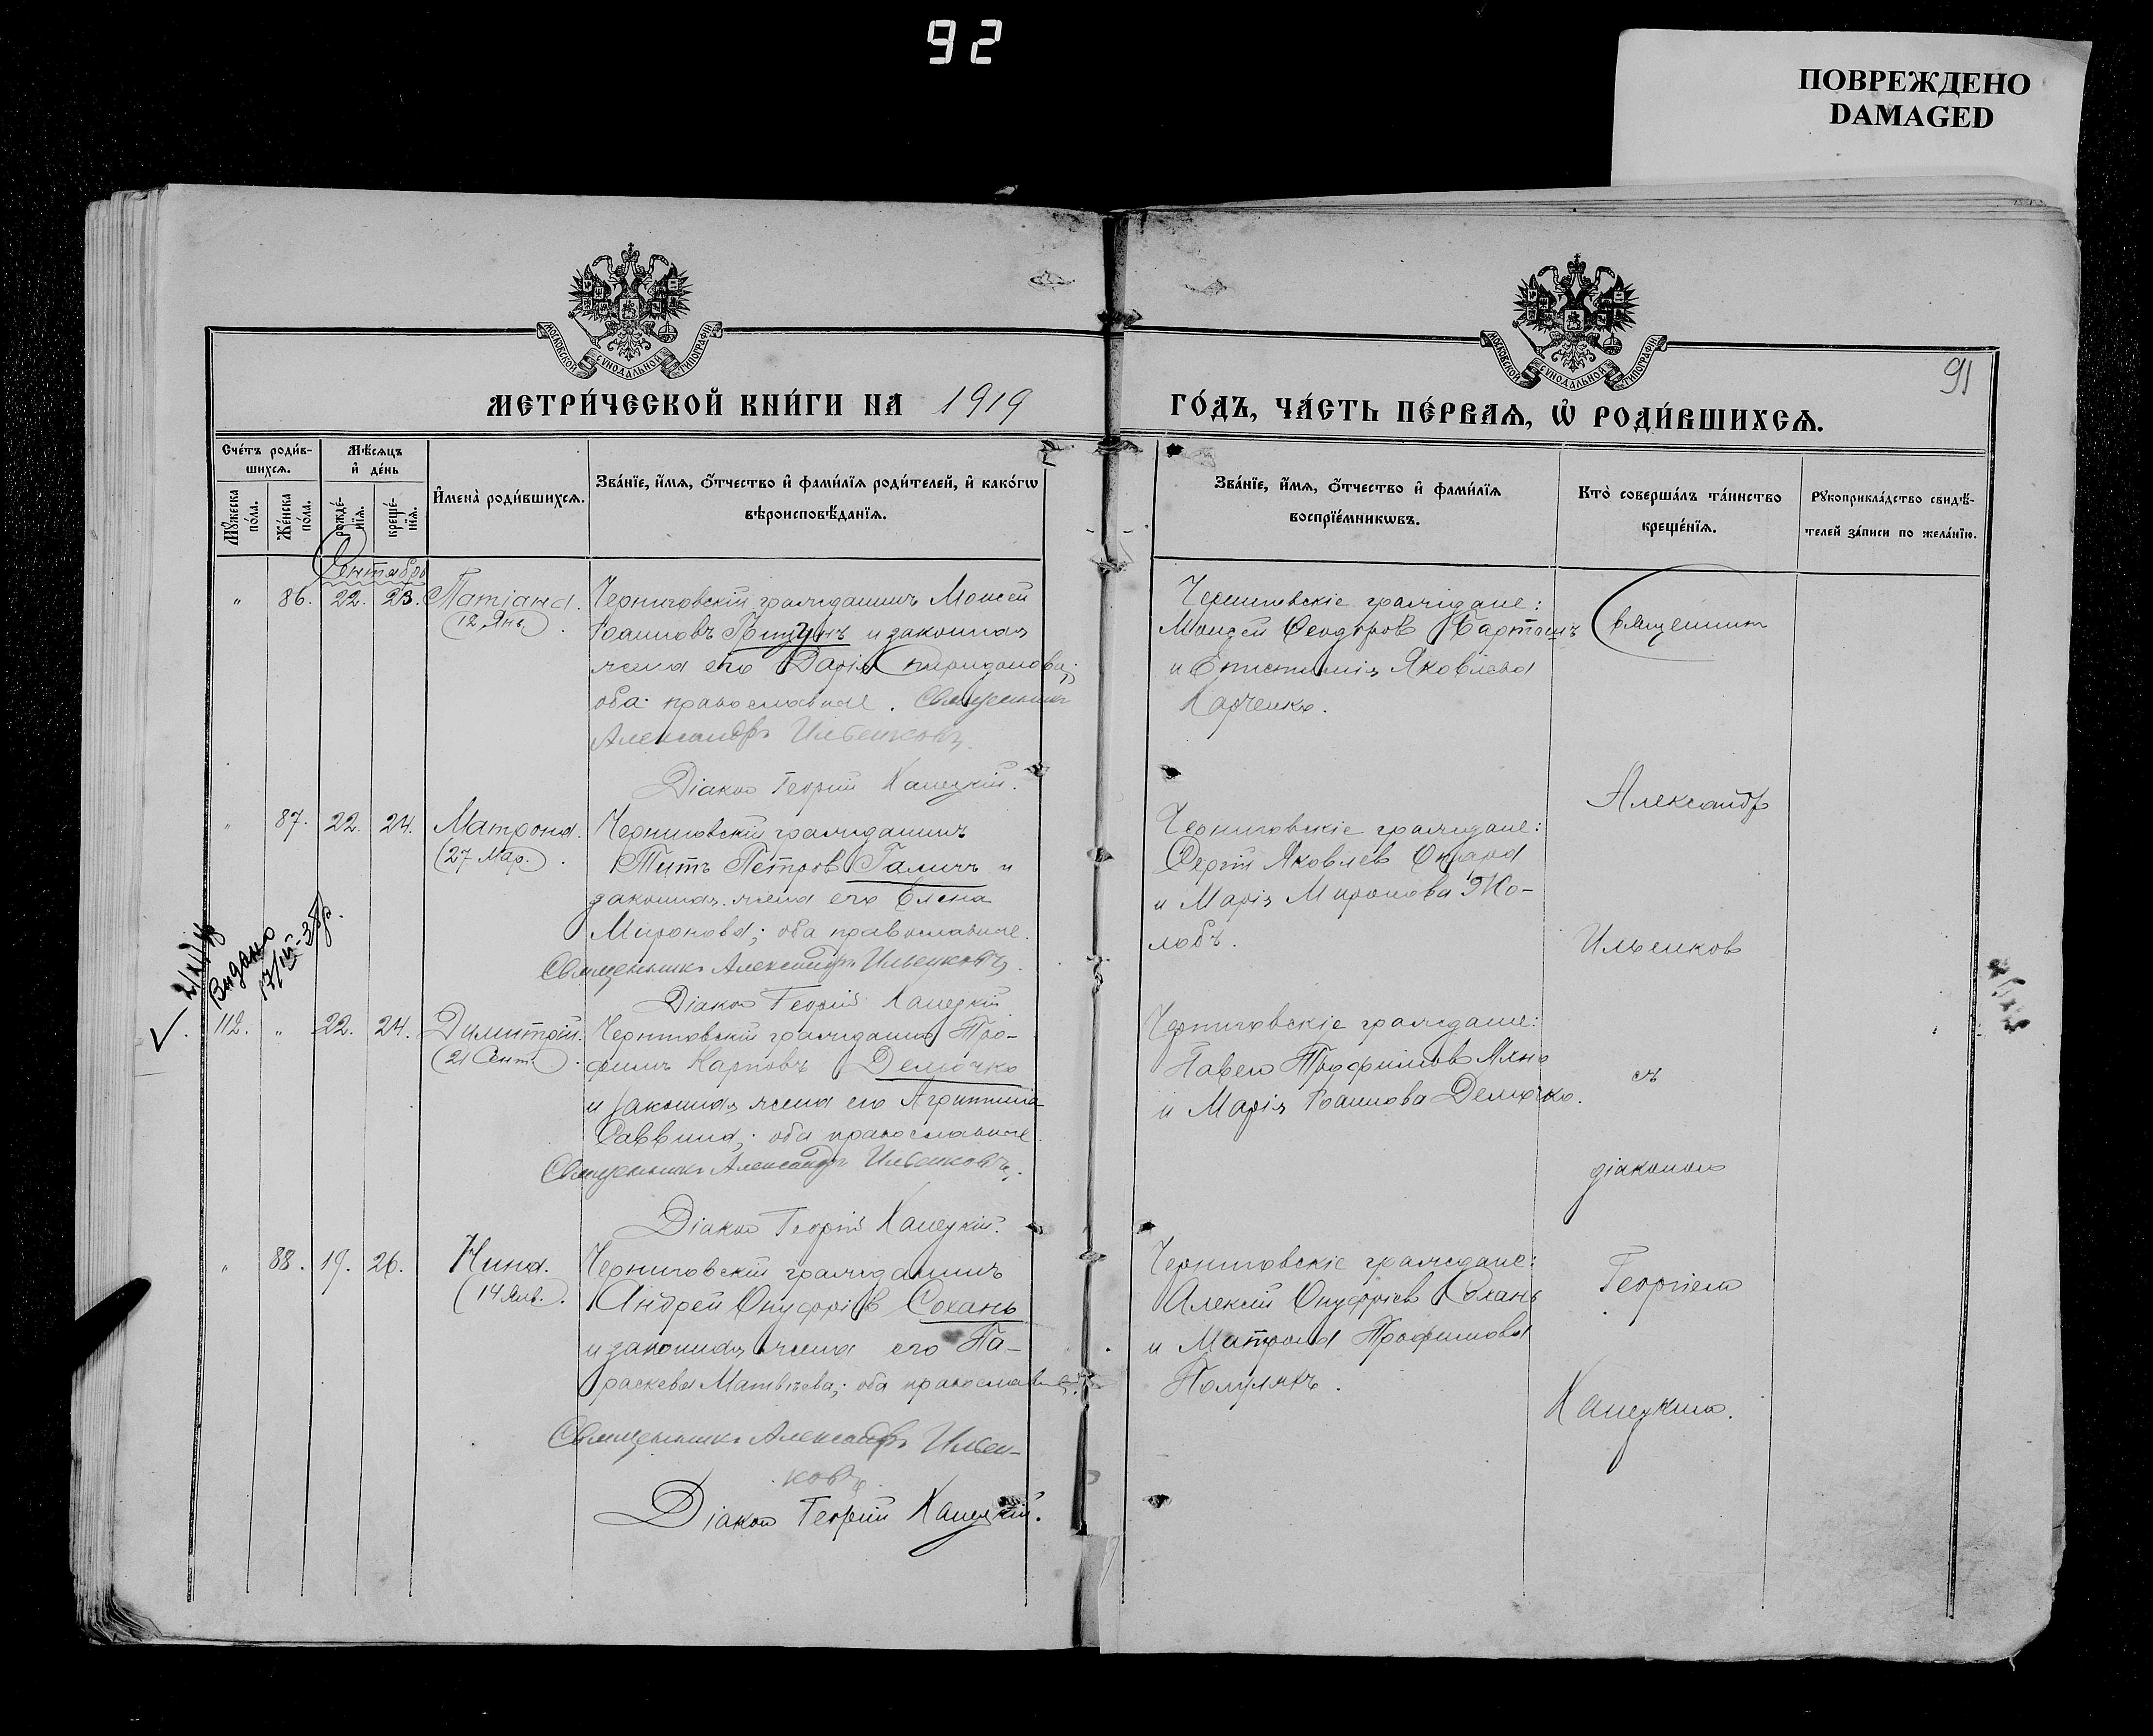 92
ПОВРЕЖДЕНО
DAMAGED
МОСКОВСКОЙ СѴНОДАЛЬНОЙ ТИПОГРАФІИ
МОСКОВСКОЙ СѴНОДАЛЬНОЙ ТИПОГРАФІИ
91
МЕТРИ́ЧЕСКОЙ КНИ́ГИ НА 1919
ГО́ДЪ, ЧА́СТЬ ПЕ́РВАЯ, Ѡ҆ РОДИ́ВШИХСЯ.
Сче́тъ роди́в-
шихся.
Мѣ́сяцъ
и҆ де́нь
Му́жеска
по́ла.
Же́нска
по́ла.
рожде́-
нїя.
креще́-
нїя.
И҆мена̀ роди́вшихся.
Зва́нїе, и҆́мя, ѻ҆́тчество и҆ фами́лїя роди́телей, и҆ како́гѡ
вѣроисповѣ́данїя.
Зва́нїе, и҆́мя, ѻ҆́тчество и҆ фами́лїя
воспрїе́мникѡвъ.
Кто̀ соверша́лъ та́инство
креще́нїя.
Рукоприкла́дство свидѣ́-
телей за́писи по жела́нїю.
Сентябрь
" 86. 22. 23. Татіана.
(12 Янв.)
Черниговскій гражданинъ Моисей
Іоанновъ и законная
жена его Дарія Спиридонова;
оба православные. Священникъ
Александръ Ильенковъ
Діакон Георгій Канецкій.
Черниговскіе граждане:
Моисей Феодоров Барташъ
и Епистимія Яковлева
Харченко.
Священник
" 87. 22. 24. Матрона.
(27 Мар.)
Черниговскій гражданинъ
Титъ Петров Галичъ и
законная жена его Елена
Миронова; оба православные.
Священникъ Александръ Ильенковъ
Діакон Георгій Канецкій
Черниговскіе граждане:
Сергій Яковлев
и Марія Миронова Жо-
лобъ.
Александр
Ильенков
Видано
✓ 112. " 22. 24. Димитрій.
(21 Сент.)
Черниговскій гражданин Тро-
фимъ Карповъ Демочко
и законная жена его Агриппина
Саввина; оба православные.
Священникъ Александръ Ильенковъ.
Діакон Георгій Канецкій.
Черниговскіе граждане:
Павел Трофимов
и Марія Іоаннова Демочко.
съ
діаконом
" 88. 19. 26. Нина.
(14 Янв.)
Черниговскій гражданинъ
Андрей Онуфріев Сохань
и законная жена его Па-
раскева Матвѣева; оба православные.
Священникъ Александръ Ильен-
ковъ
Діакон Георгій Канецкій.
Черниговскіе граждане:
Алексій Онуфріев Сохань
и Матрона Трофимова
Полуляхъ.
Георгіем
Канецким.